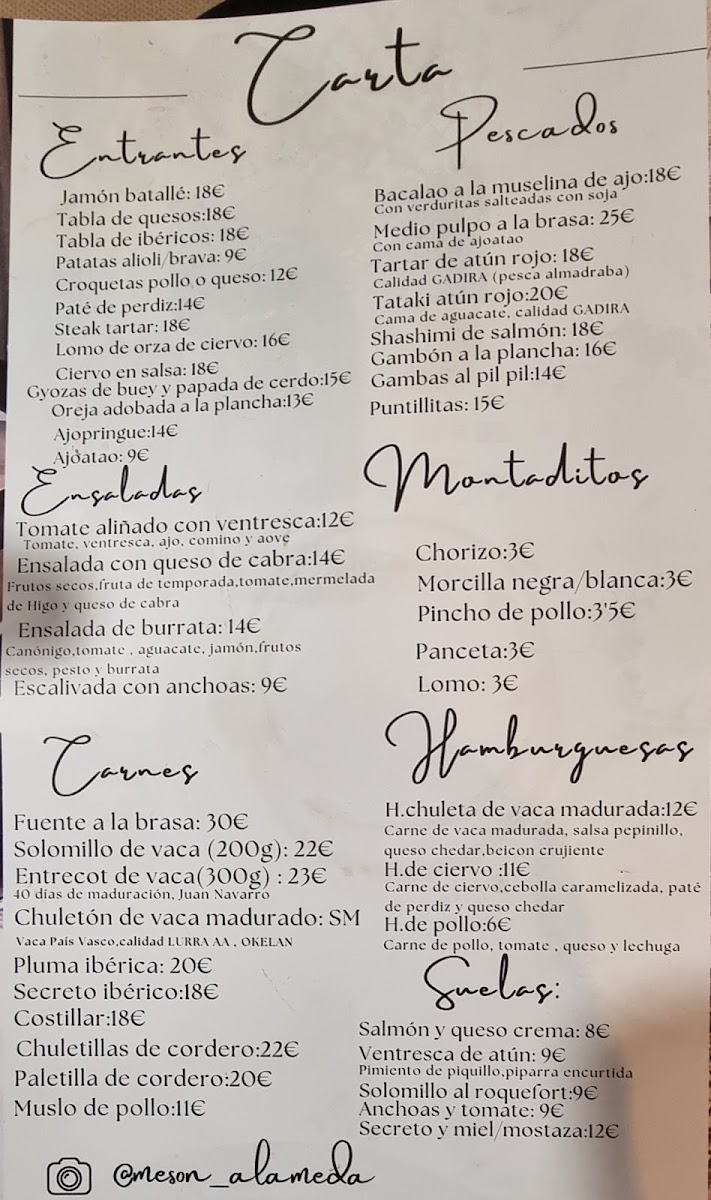 Carta
Entrantes
Jamón batallé: 18€
Tabla de quesos:18€
Tabla de ibéricos: 18€
Patatas alioli/brava: 9€
Croquetas pollo o queso: 12€
Paté de perdiz:14€
Steak tartar: 18€
Lomo de orza de ciervo: 16€
Ciervo en salsa: 18€
Gyozas de buey y papada de cerdo:15€
Oreja adobada a la plancha:13€
Ajopringue:14€
Ajoatao: 9€
Ensaladas
Tomate aliñado con ventresca:12€
Tomate, ventresca, ajo, comino y aove
Ensalada con queso de cabra:14€
Frutos secos,fruta de temporada,tomate,mermelada
de Higo y queso de cabra
Ensalada de burrata: 14€
Canónigo,tomate , aguacate, jamón,frutos
secos, pesto y burrata
Escalivada con anchoas: 9€
Carnes
Fuente a la brasa: 30€
Solomillo de vaca (200g): 22€
Entrecot de vaca(300g) : 23€
40 días de maduración, Juan Navarro
Chuletón de vaca madurado: SM
Vaca País Vasco,calidad LURRA AA , OKELAN
Pluma ibérica: 20€
Secreto ibérico:18€
Costillar:18€
Chuletillas de cordero:22€
Paletilla de cordero:20€
Muslo de pollo:11€
@meson_alameda
Pescados
Bacalao a la muselina de ajo:18€
Con verduritas salteadas con soja
Medio pulpo a la brasa: 25€
Con cama de ajoatao
Tartar de atún rojo: 18€
Calidad GADIRA (pesca almadraba)
Tataki atún rojo:20€
Cama de aguacate, calidad GADIRA
Shashimi de salmón: 18€
Gambón a la plancha: 16€
Gambas al pil pil:14€
Puntillitas: 15€
Montaditos
Chorizo:3€
Morcilla negra/blanca:3€
Pincho de pollo:3'5€
Panceta:3€
Lomo: 3€
Hamburguesas
H.chuleta de vaca madurada:12€
Carne de vaca madurada, salsa pepinillo,
queso chedar,beicon crujiente
H.de ciervo :11€
Carne de ciervo,cebolla caramelizada, paté
de perdiz y queso chedar
H.de pollo:6€
Carne de pollo, tomate , queso y lechuga
Suelas:
Salmón y queso crema: 8€
Ventresca de atún: 9€
Pimiento de piquillo,piparra encurtida
Solomillo al roquefort:9€
Anchoas y tomate: 9€
Secreto y miel/mostaza:12€